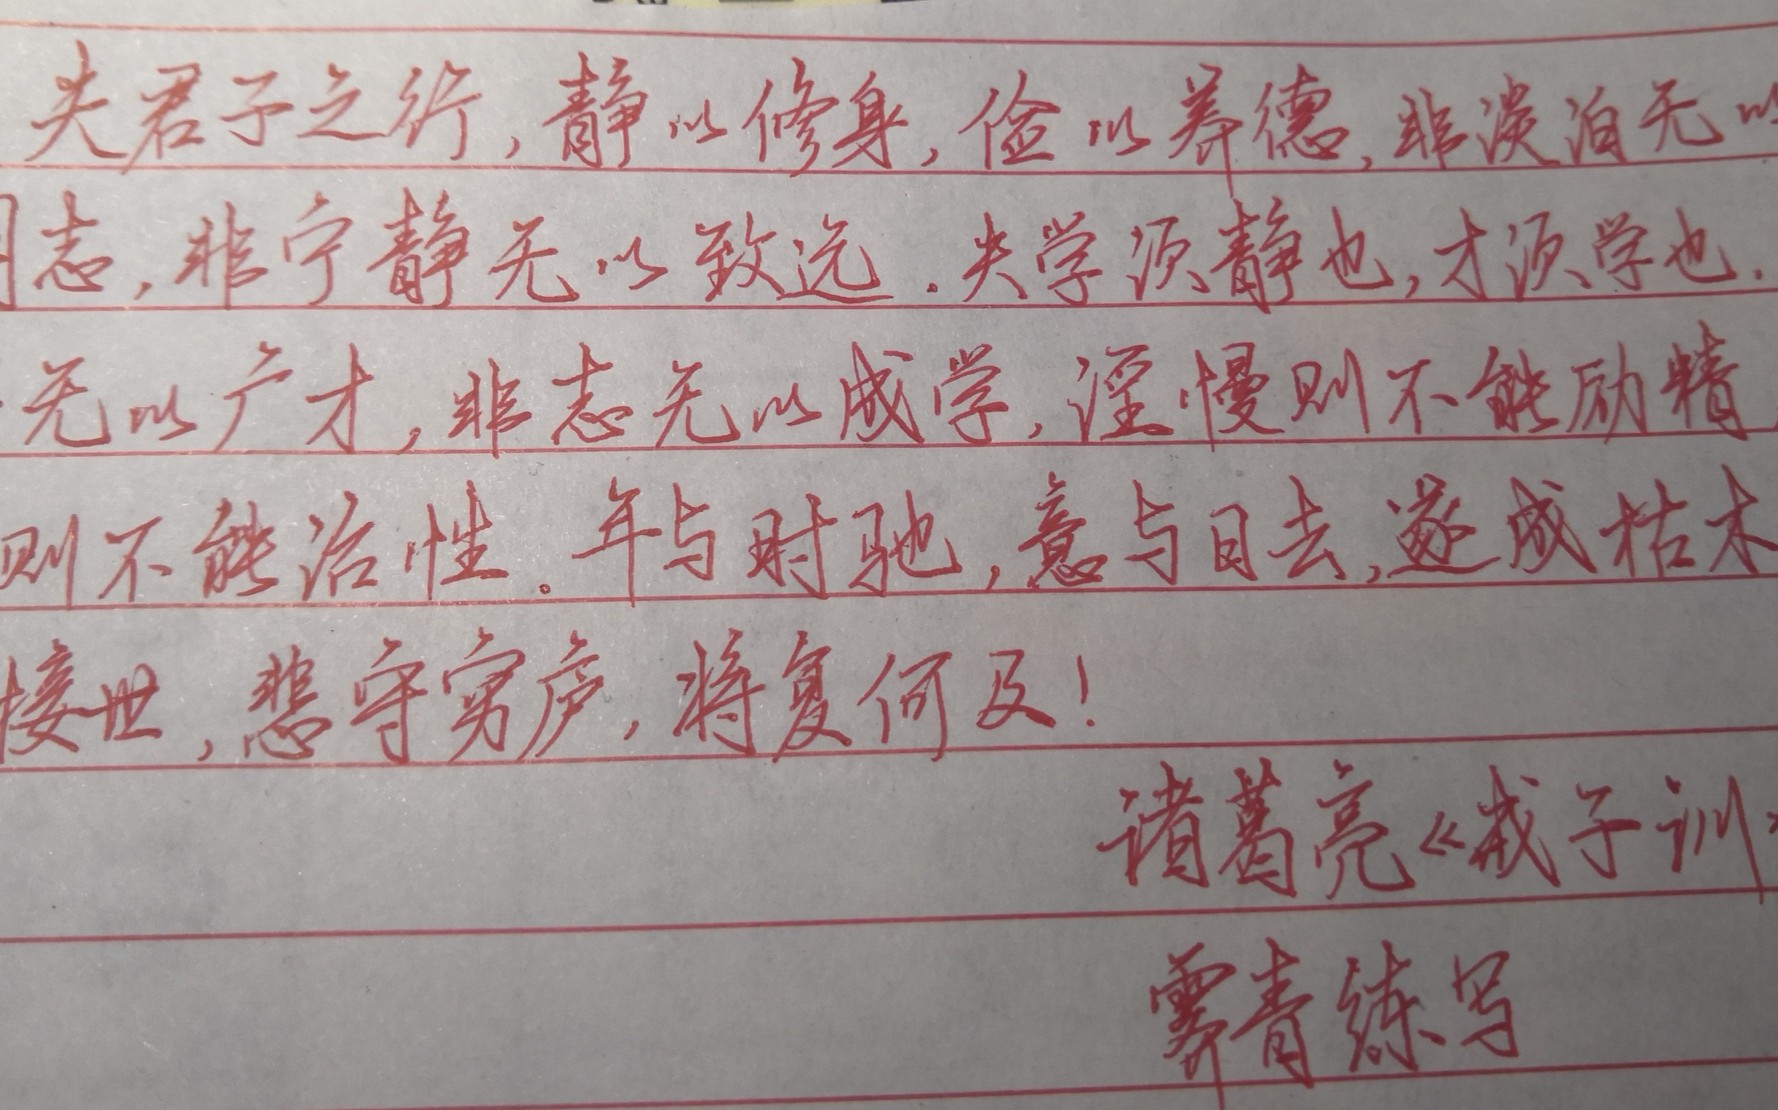 夫君子之行，静以修身，俭以养德，非淡泊无以
明志，非宁静无以致远．夫学须静也，才须学也．
无以广才，非志无以成学，淫慢则不能励精，
则不能治性。年与时驰，意与日去，遂成枯木
接世，悲守穷庐，将复何及！
诸葛亮《戒子训》
霁青练写